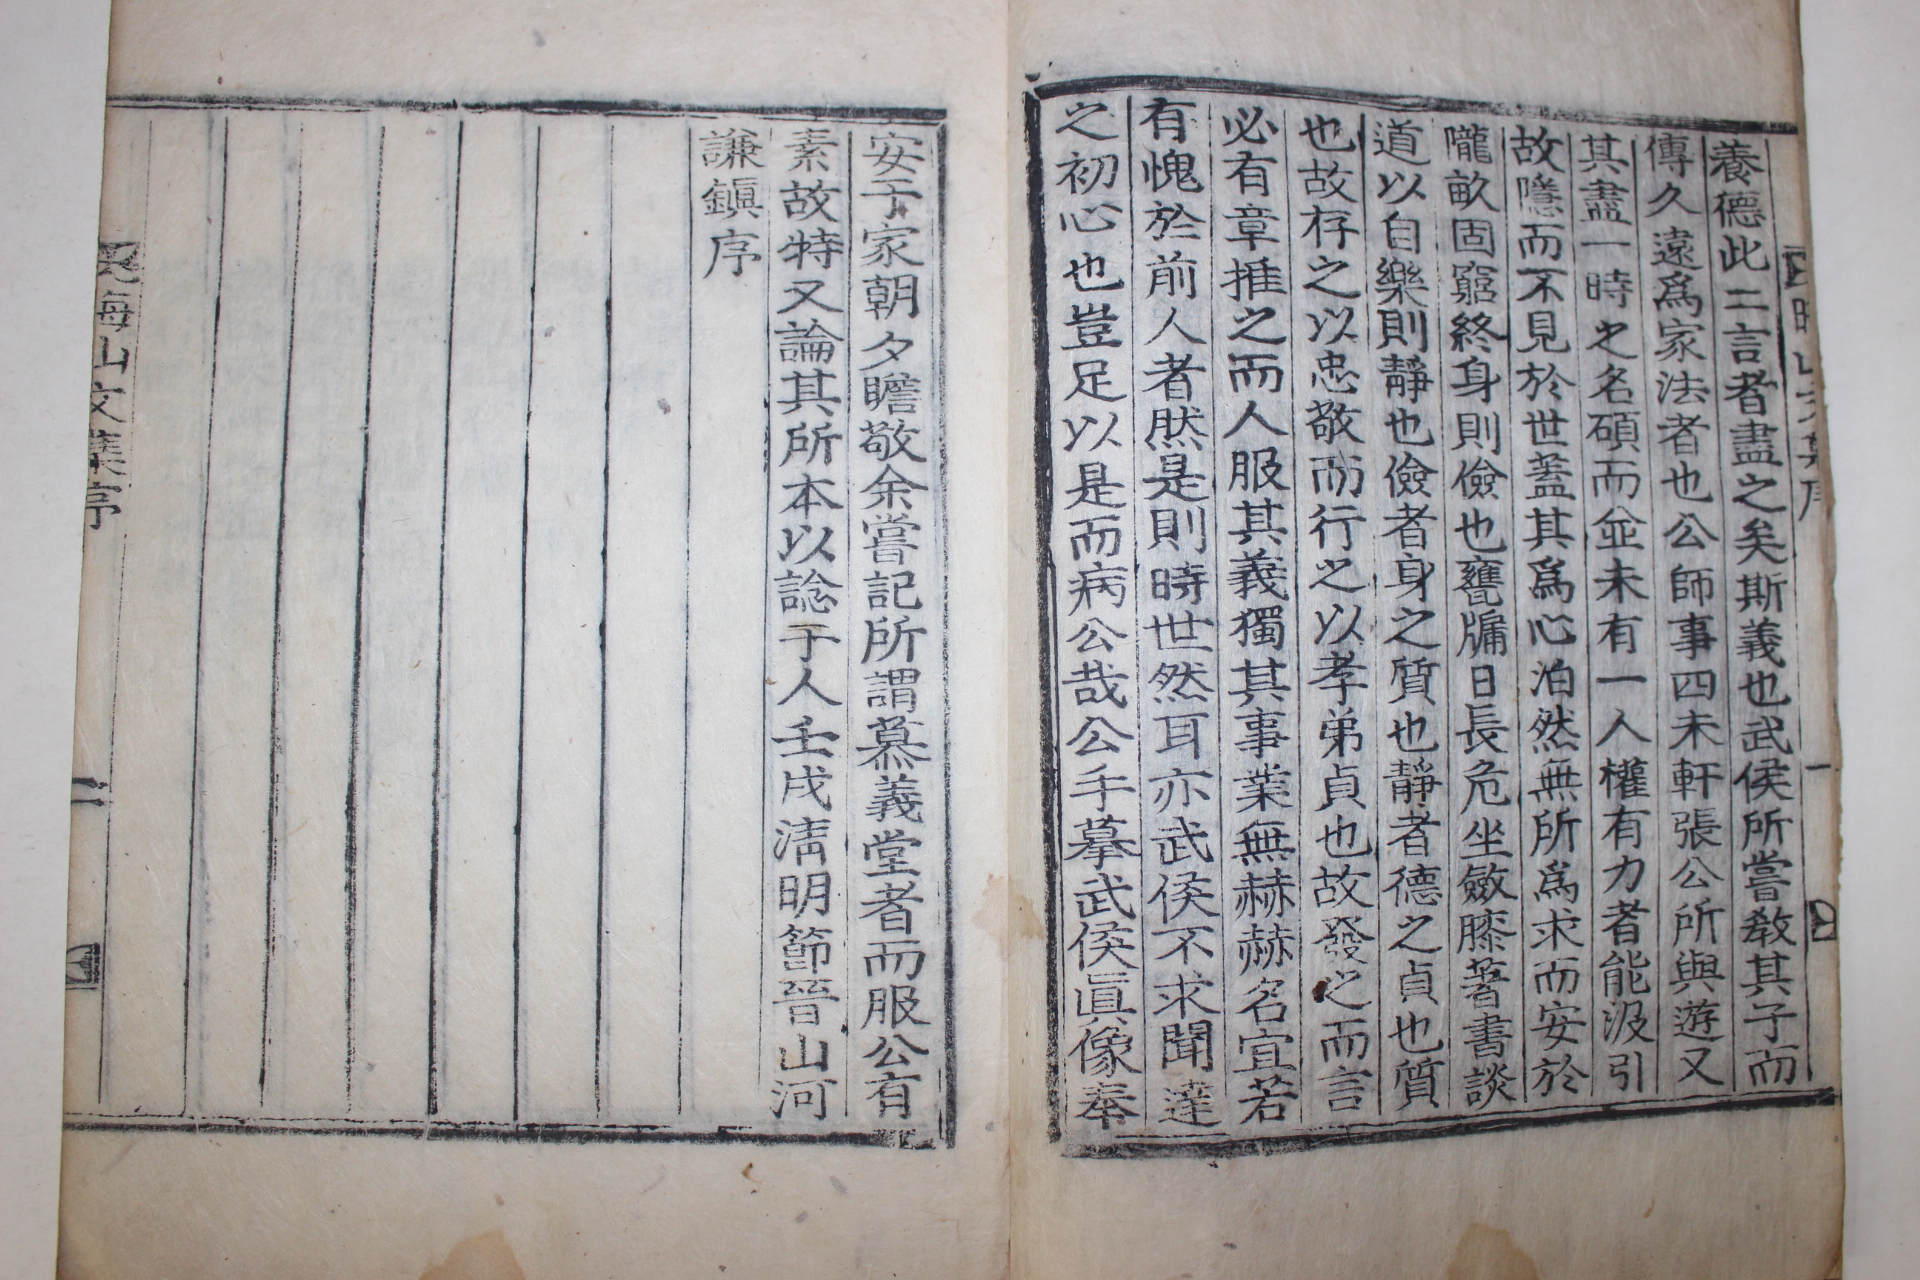 養德此二言者盡之矣斯義也武侯所嘗敎其子而
傳久遠爲家法者也公師事四未軒張公所與遊又
其盡一時之名碩而並未有一人權有力者能汲引
故隱而不見於世蓋其爲心泊然無所爲求而安於
隴畝固窮終身則儉也甕牖日長危坐斂膝著書談
道以自樂則靜也儉者身之質也靜者德之貞也質
也故存之以忠敬而行之以孝弟貞也故發之而言
必有章推之而人服其義獨其事業無赫赫名宜若
有愧於前人者然是則時世然耳亦武侯不求聞達
之初心也豈足以是而病公哉公手摹武侯眞像奉
安于家朝夕瞻敬余嘗記所謂慕義堂者而服公有
素故特又論其所本以諗于人壬戌淸明節晉山河
謙鎭序
海山文集序
二